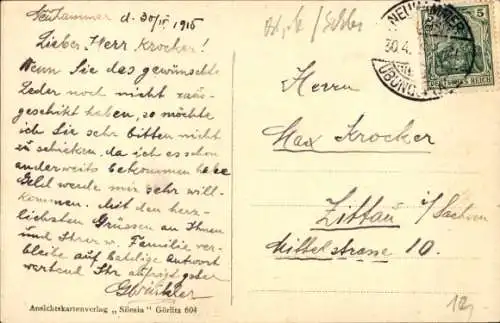 Neuhammer d. 30/IV 1916
Lieber Herr Krocker!
Wenn Sie das gewünschte
Leder noch nicht raus-
geschikt haben, so möchte
ich Sie sehr bitten nicht
zu schicken, da ich es schon
anderweits bekommen habe
Geld werde mir sehr will-
kommen. Mit den herz-
lichsten Grüssen an Ihnen
und Ihrer w. Familie ver-
bleibe auf baldige Antwort
wartend Ihr
Ansichtskartenverlag „Silesia" Görlitz 604
NEUHAMMER
30.4.
ÜBUNGS
5
DEUTSCHES REICH
Herrn
Max Krocker
Zittau i/Sachsen
Mittelstrasse 10.
12